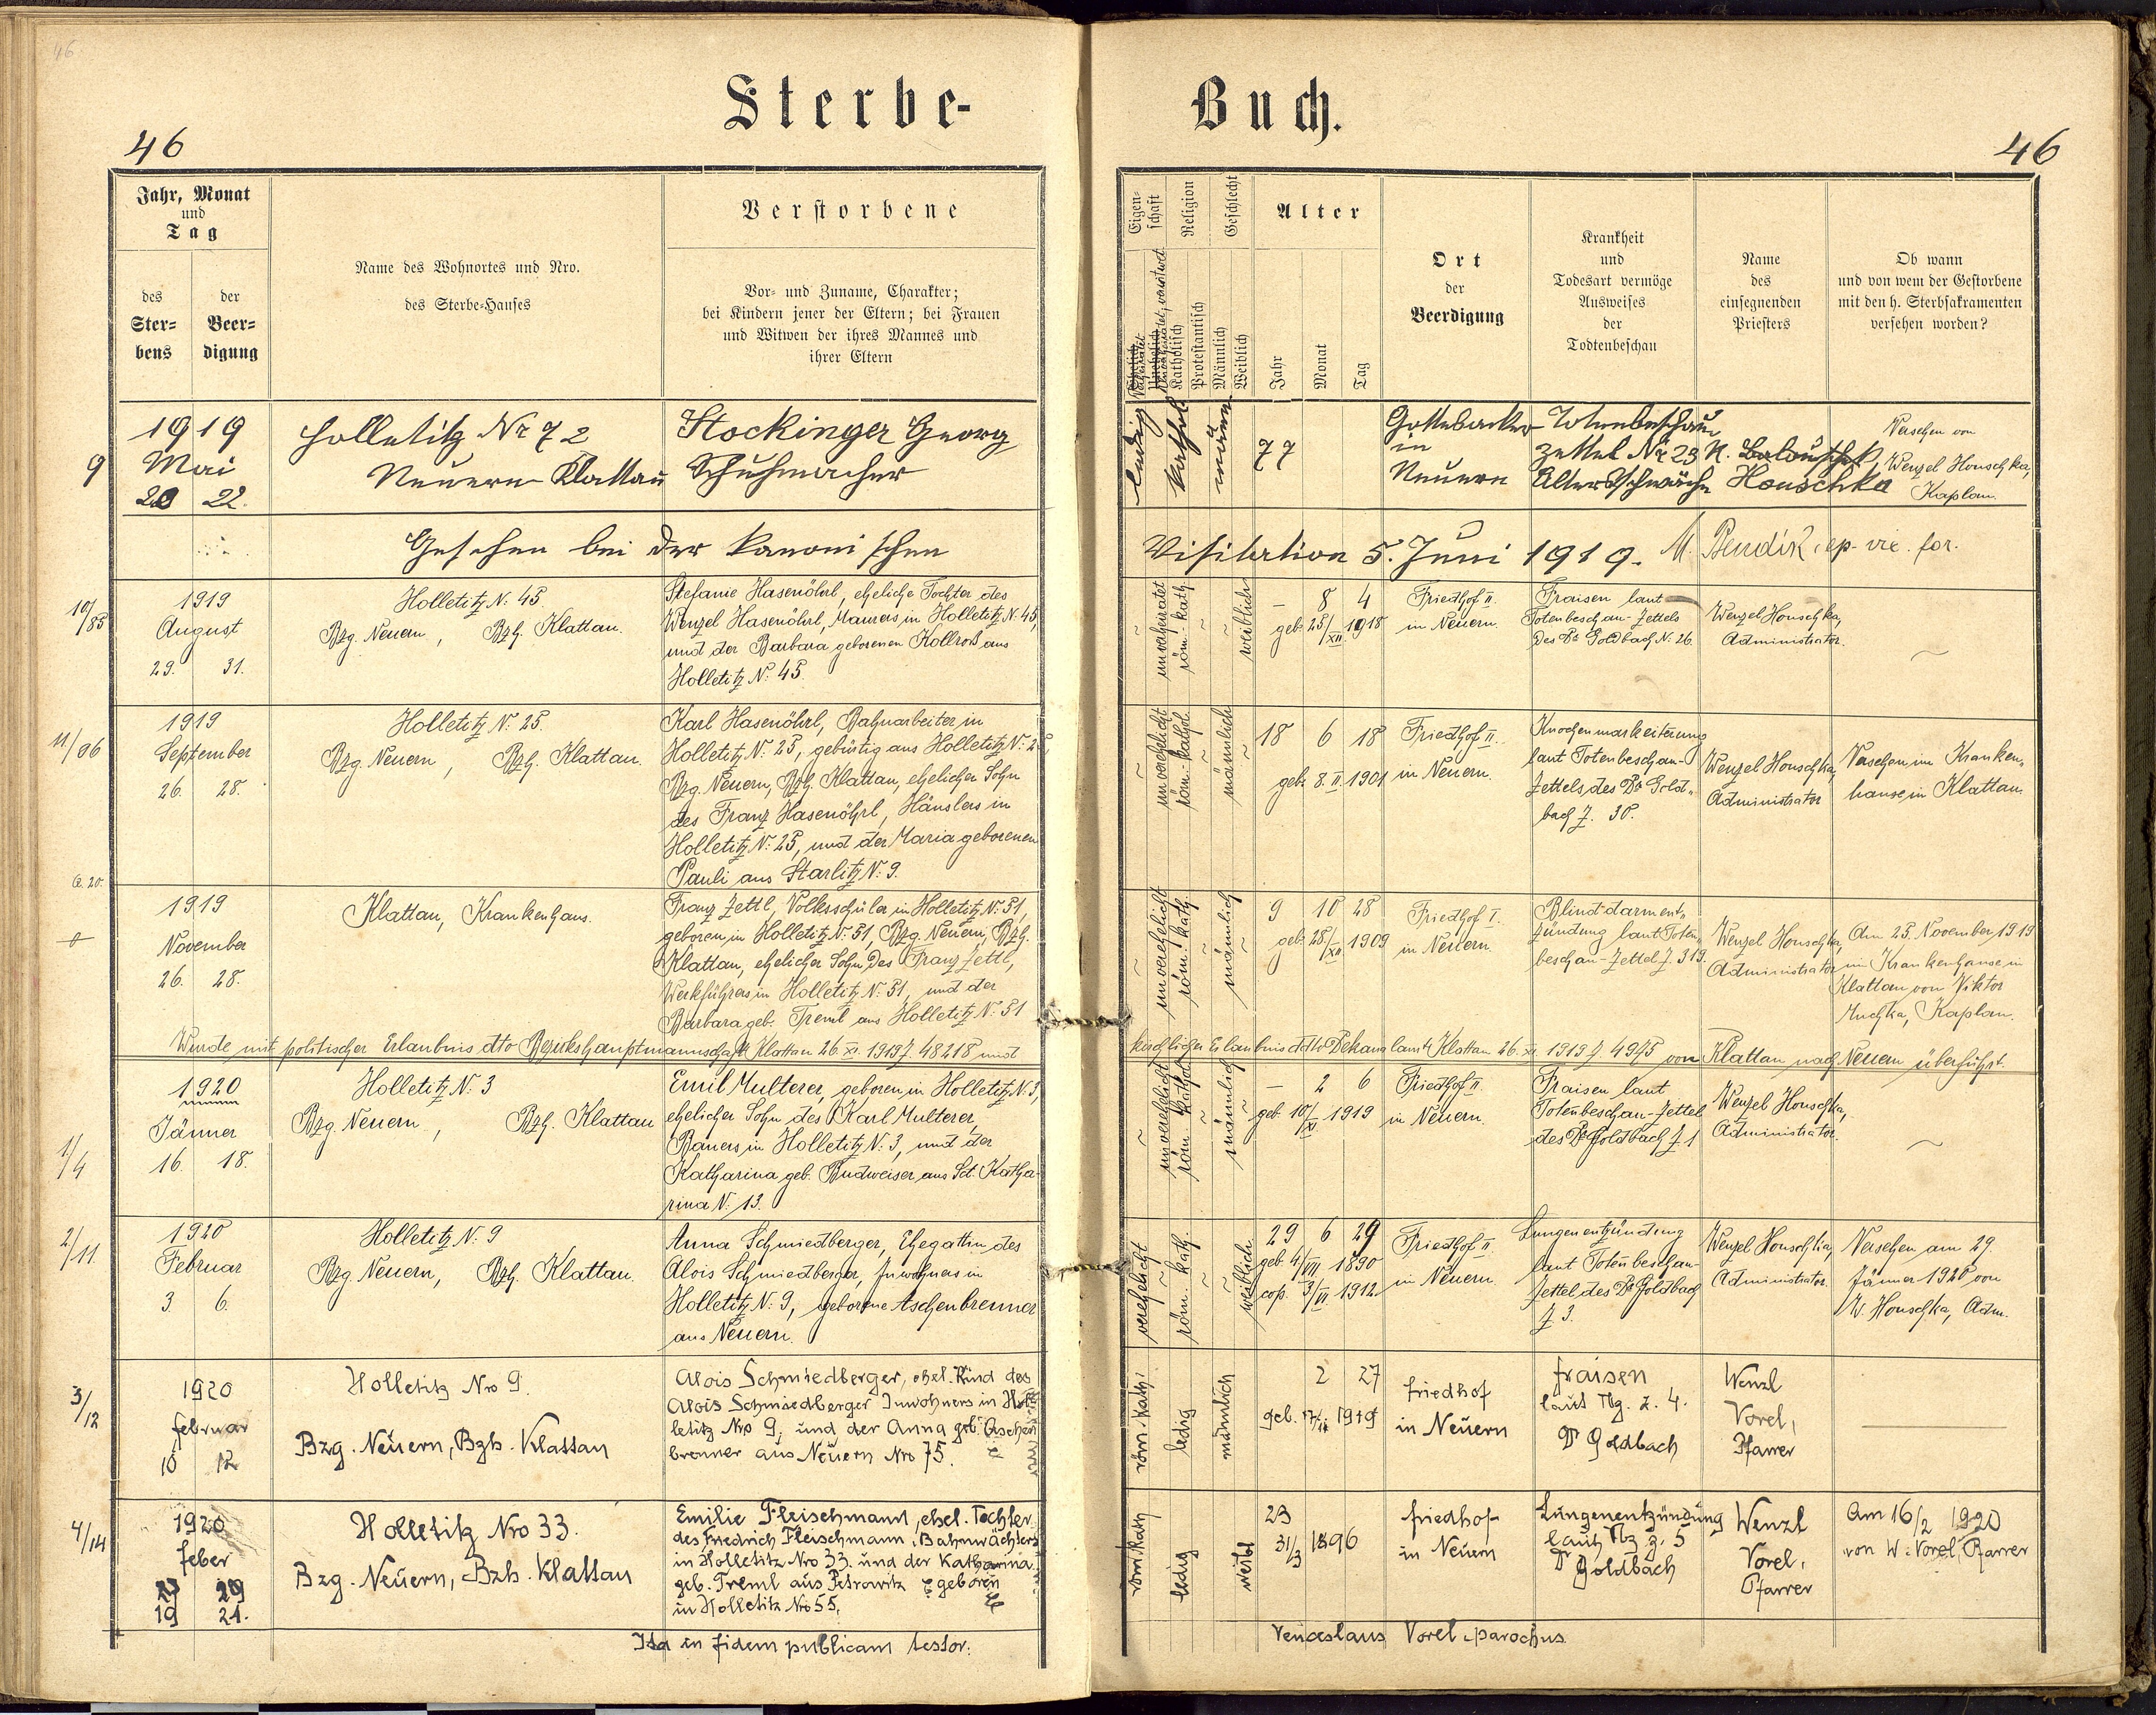 46
Sterbe-Buch.
46
46
Jahr, Monat
und
Tag
des
Ster-
bens
der
Beer-
digung
Name des Wohnortes und Nro.
des Sterbe-Hauses
Verstorbene
Vor- und Zuname, Charakter;
bei Kindern jener der Eltern; bei Frauen
und Witwen der ihres Mannes und
ihrer Eltern
Eigen-
schaft
Religion
Katholisch
Protestantisch
Geschlecht
Männlich
Weiblich
Alter
Jahr
Monat
Tag
Ort
der
Beerdigung
Krankheit
und
Todesart vermöge
Ausweises
der
Todtenbeschau
Name
des
einsegnenden
Priesters
Ob wann
und von wem der Gestorbene
mit den h. Sterbsakramenten
versehen worden?
9
1919
Mai
20 22.
Holletitz Nr 72
Neuern Klattau
Stockinger Georg
Schuhmacher
ledig
kathol.
männ
77
Gottesacker
in
Neuern
Totenbeschau
zettel Nr 23
Altersschwäche
Houschka
Versehen von
Wenzel Houschka,
Kaplan.
Gesehen bei der kanonischen Visitation 5. Juni 1919. M. Bendik, ep. vic. for.
10/85
1919
August
29. 31.
Holletitz N: 45
Bzg. Neuern, Bzh. Klattau.
Stefanie Hasenöhrl, eheliche Tochter des
Wenzel Hasenöhrl, Maurers in Holletitz N: 45,
und der Barbara geborenen Kollroß aus
Holletitz N: 45
unverheiratet
röm.-kath.
weiblich
– 8 4
geb. 25/XII 1918
Friedhof II.
in Neuern.
Fraisen laut
Totenbeschau-Zettels
des Dr Goldbach N. 26.
Wenzel Houschka,
Administrator.
~
11/86
1919
September
26. 28.
Holletitz N: 25.
Bzg. Neuern, Bzh. Klattau.
Karl Hasenöhrl, Bahnarbeiter in
Holletitz N: 25, gebürtig aus Holletitz N: 25,
Bzg. Neuern, Bzh. Klattau, ehelicher Sohn
des Franz Hasenöhrl, Häuslers in
Holletitz N: 25, und der Maria geborenen
Pauli aus Starlitz N: 9.
unverehelicht
röm.-kathol.
männlich
18 6 18
geb. 8. II. 1901
Friedhof II.
in Neuern.
Knochenmarkeiterung
laut Totenbeschau-
Zettels des Dr Gold-
bach Z. 30.
Wenzel Houschka,
Administrator
Versehen im Kranken-
hause in Klattau.
1919
November
26. 28.
Klattau, Krankenhaus.
Franz Zettl, Volksschüler in Holletitz N: 51,
geboren in Holletitz N: 51, Bzg. Neuern, Bzh.
Klattau, ehelicher Sohn des Franz Zettl,
Werkführers in Holletitz N: 51, und der
Barbara geb. Treml aus Holletitz N: 51
unverehelicht
röm. kath.
männlich
9 10 28
geb. 28/XII 1909
Friedhof I.
in Neuern
Blinddarment-
zündung laut Toten-
beschau-Zettel Z. 319.
Wenzel Houschka,
Administrator
Am 25. November 1919
im Krankenhause in
Klattau von Viktor
Kaplan.
Wurde mit politischer Erlaubnis dto Bezirkshauptmannschaft Klattau 26. XI. 1919 Z. 48218 und kirchlicher Erlaubnis dto Dekanalamt Klattau 26. XI. 1919 Z. 4975 von Klattau nach Neuern überführt.
1/4
1920
Jänner
16. 18.
Holletitz N: 3
Bzg. Neuern, Bzh. Klattau
Emil Multerer, geboren in Holletitz N: 3,
ehelicher Sohn des Karl Multerer,
Bauers in Holletitz N: 3, und der
Katharina geb. Budweiser aus Sct. Katha-
rina N: 13.
unverehelicht
röm.-kathol.
männlich
– 2 6
geb. 10/XI 1919
Friedhof II.
in Neuern.
Fraisen laut
Totenbeschau-Zettel
des Dr Goldbach Z. 1
Wenzel Houschka,
Administrator.
~
2/11
1920
Februar
3. 6.
Holletitz N: 9
Bzg. Neuern, Bzh. Klattau.
Anna Schmiedberger, Ehegattin des
Alois Schmiedberger, Inwohners in
Holletitz N: 9, geborene Aschenbrenner
aus Neuern.
verehelicht
röm. kath.
weiblich
29 6 29
geb. 4/VII 1890
cop. 3/VI 1912
Friedhof II.
in Neuern.
Lungenentzündung
laut Totenbeschau-
Zettel des Dr Goldbach
Z 3.
Wenzel Houschka,
Administrator.
Versehen am 29.
Jänner 1920 von
W. Houschka, Adm.
3/12
1920
februar
10 12
Holletitz Nro 9.
Bzg. Neuern, Bzh. Klattau
Alois Schmiedberger, ehel. Kind des
Alois Schmiedberger Inwohners in Hol-
letitz Nro 9, und der Anna geb. Aschen
brenner aus Neuern Nro 75.
röm. kath.
ledig
männlich
2 27
geb. 17/11 1919
friedhof
in Neuern
fraisen
laut Tbz. z. 4.
Dr Goldbach
Wenzl
Vorel,
Pfarrer
4/14
1920
feber
19 21.
Holletitz Nro 33.
Bzg. Neuern, Bzh. Klattau
Emilie Fleischmann, ehel. Tochter
des Friedrich Fleischmann, Bahnwächters
in Holletitz Nro 33. und der Katharina
geb. Treml aus Petrowitz geboren
in Holletitz Nro 55.
röm. kath
ledig
weibl
23
31/3 1896
friedhof-
in Neuern
Lungenentzündung
laut Tbz z. 5
Dr Goldbach
Wenzl
Vorel,
Pfarrer
Am 16/2 1920
von W. Vorel, Pfarrer
Ita in fidem publicam testor: Venceslaus Vorel, parochus